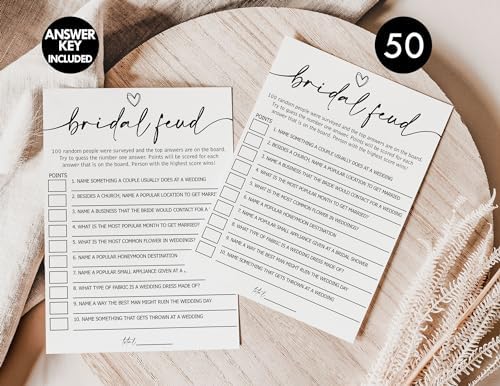 ANSWER
KEY
INCLUDED
50
bridal feud
100 random people were surveyed and the top answers are on the board.
Try to guess the number one answer. Points will be scored for each
answer that is on the board. Person with the highest score wins!
POINTS
1. NAME SOMETHING A COUPLE USUALLY DOES AT A WEDDING
2. BESIDES A CHURCH, NAME A POPULAR LOCATION TO GET MARRIED
3. NAME A BUSINESS THAT THE BRIDE WOULD CONTACT FOR A
4. WHAT IS THE MOST POPULAR MONTH TO GET MARRIED?
5. WHAT IS THE MOST COMMON FLOWER IN WEDDINGS?
6. NAME A POPULAR HONEYMOON DESTINATION
7. NAME A POPULAR SMALL APPLIANCE GIVEN AT A
8. WHAT TYPE OF FABRIC IS A WEDDING DRESS MADE OF?
9. NAME A WAY THE BEST MAN MIGHT RUIN THE WEDDING DAY
10. NAME SOMETHING THAT GETS THROWN AT A WEDDING
total
bridal feud
100 random people were surveyed and the top answers are on the board.
Try to guess the number one answer. Points will be scored for each
answer that is on the board. Person with the highest score wins!
POINTS
1. NAME SOMETHING A COUPLE USUALLY DOES AT A WEDDING
2. BESIDES A CHURCH, NAME A POPULAR LOCATION TO GET MARRIED
3. NAME A BUSINESS THAT THE BRIDE WOULD CONTACT FOR A WEDDING
4. WHAT IS THE MOST POPULAR MONTH TO GET MARRIED?
5. WHAT IS THE MOST COMMON FLOWER IN WEDDINGS?
6. NAME A POPULAR HONEYMOON DESTINATION
7. NAME A POPULAR SMALL APPLIANCE GIVEN AT A BRIDAL SHOWER
8. WHAT TYPE OF FABRIC IS A WEDDING DRESS MADE OF?
9. NAME A WAY THE BEST MAN MIGHT RUIN THE WEDDING DAY
10. NAME SOMETHING THAT GETS THROWN AT A WEDDING
total